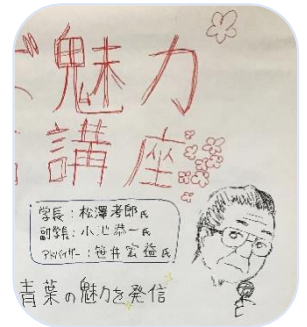 魅力
講座
学長：松澤孝郎氏
副学長：小池恭一氏
アドバイザー：笹井宏益氏
青葉の魅力を発信